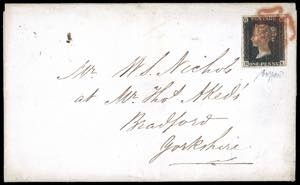 POSTAGE
ONE PENNY
Mr. W. S. Nichols
at Mr. Thos. Aked's
Bradford
Yorkshire.